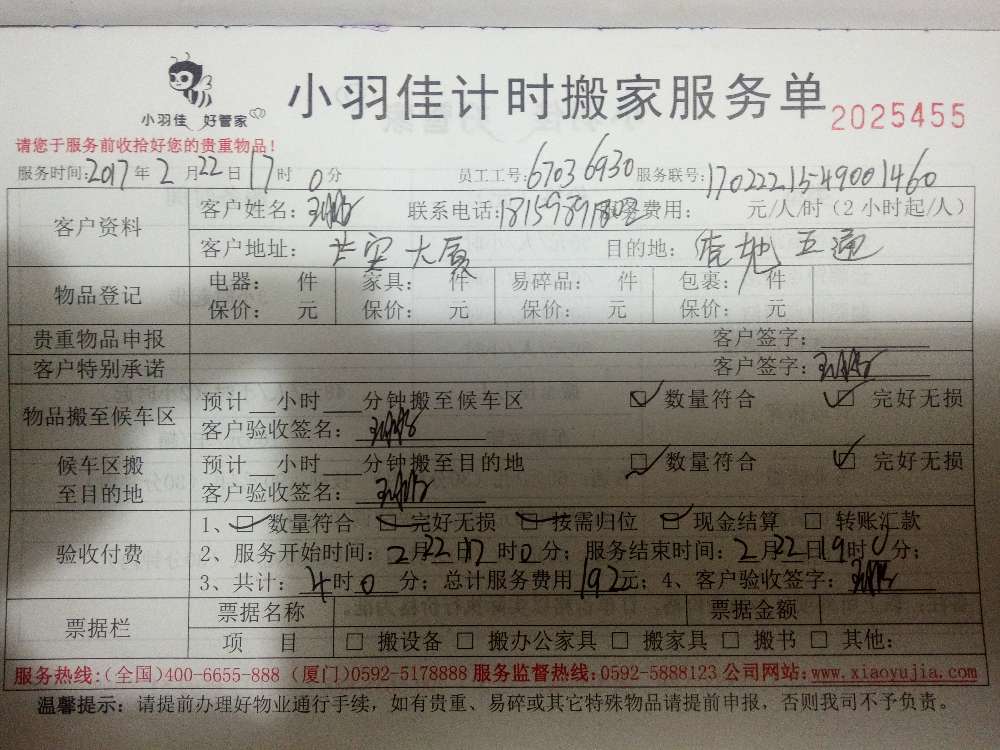 小羽佳 好管家
小羽佳计时搬家服务单 2025455
请您于服务前收拾好您的贵重物品!
服务时间:2017年2月22日17时0分 员工工号:67036930 服务联号:1702221549001460
客户资料 客户姓名: 联系电话:18159891802 服务费用: 元/人/时(2小时起/人)
客户地址: 大厦 目的地: 五通
物品登记 电器: 件 家具: 件 易碎品: 件 包裹: 件
保价: 元 保价: 元 保价: 元 保价: 元
贵重物品申报 客户签字:
客户特别承诺 客户签字:
物品搬至候车区 预计__小时___分钟搬至候车区 ☑ 数量符合 ☑ 完好无损
客户验收签名:
候车区搬至目的地 预计__小时___分钟搬至目的地 ☑ 数量符合 ☑ 完好无损
客户验收签名:
验收付费 1、☑ 数量符合 ☑ 完好无损 ☑ 按需归位 ☑ 现金结算 □ 转账汇款
2、服务开始时间:2月22日17时0分; 服务结束时间:2月22日19时0分;
3、共计:4时0分; 总计服务费用192元; 4、客户验收签字:
票据栏 票据名称 票据金额
项 目 □ 搬设备 □ 搬办公家具 □ 搬家具 □ 搬书 □ 其他:
服务热线:(全国)400-6655-888 (厦门)0592-5178888 服务监督热线:0592-5888123 公司网站:www.xiaoyujia.com
温馨提示: 请提前办理好物业通行手续,如有贵重、易碎或其它特殊物品请提前申报,否则我司不予负责。